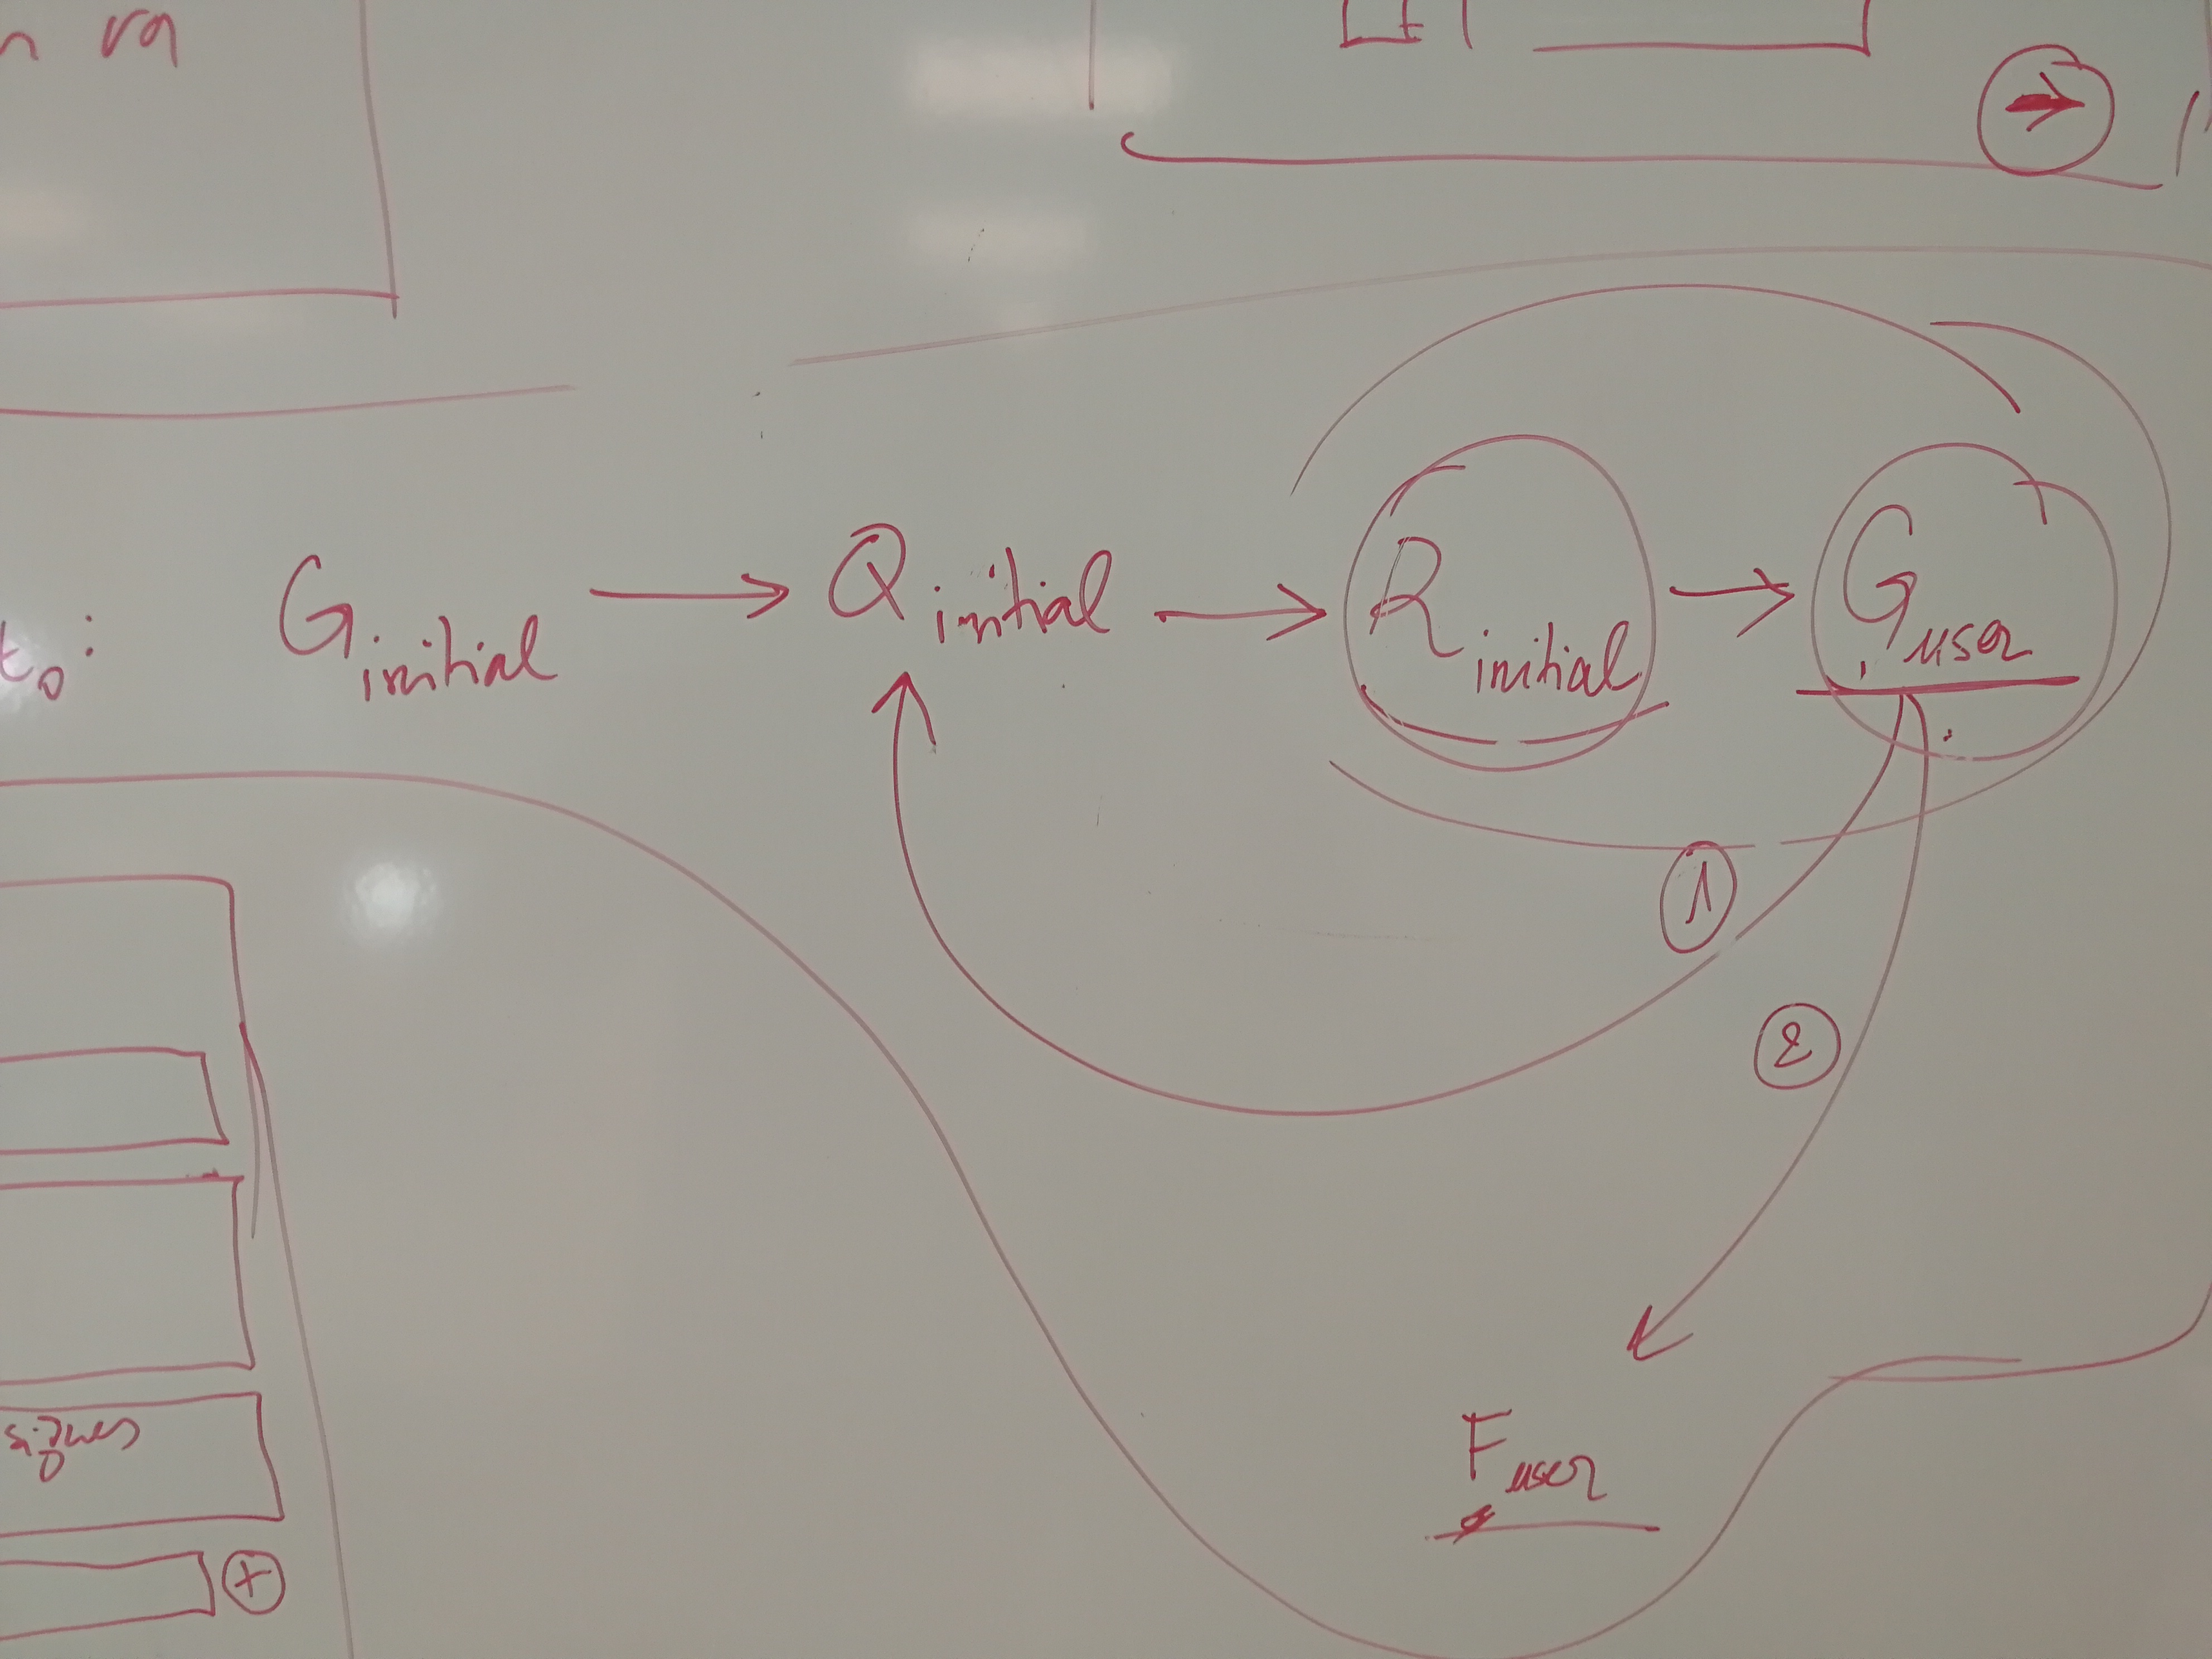 n va
t₀: G initial → Q initial → R initial → G user
1
2
F user
signes
+